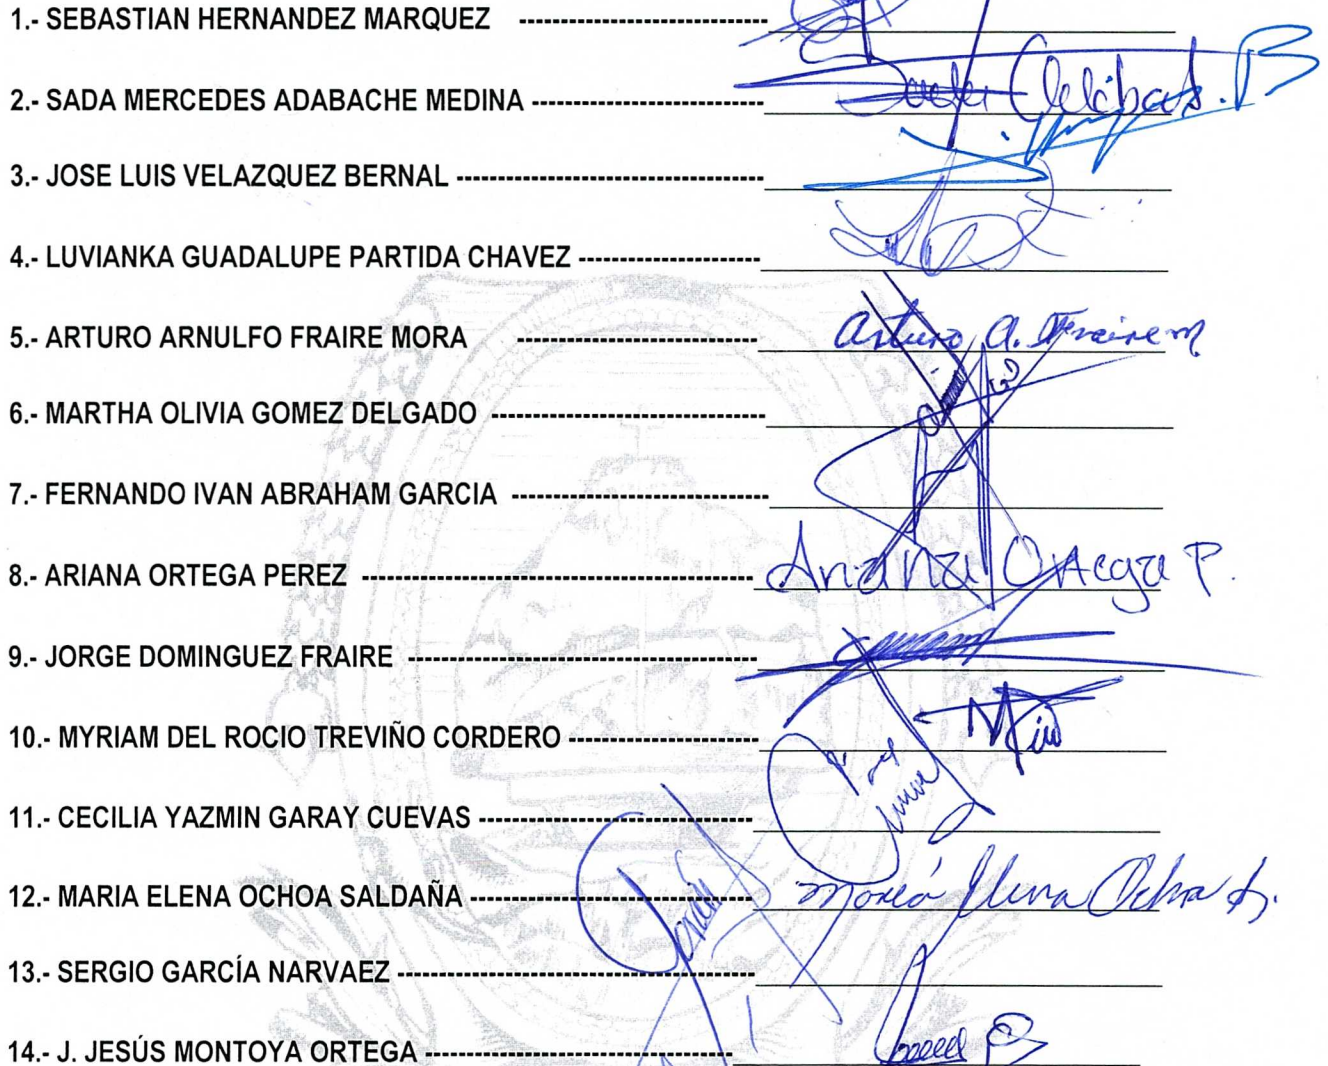 1.- SEBASTIAN HERNANDEZ MARQUEZ -------------------------
2.- SADA MERCEDES ADABACHE MEDINA -----------------------
3.- JOSE LUIS VELAZQUEZ BERNAL -------------------------------
4.- LUVIANKA GUADALUPE PARTIDA CHAVEZ ------------------
5.- ARTURO ARNULFO FRAIRE MORA ------------------------ Arturo A. Fraire M
6.- MARTHA OLIVIA GOMEZ DELGADO ---------------------------
7.- FERNANDO IVAN ABRAHAM GARCIA --------------------------
8.- ARIANA ORTEGA PEREZ --------------------------------------- Ariana Ortega P.
9.- JORGE DOMINGUEZ FRAIRE -----------------------------------
10.- MYRIAM DEL ROCIO TREVIÑO CORDERO -------------------
11.- CECILIA YAZMIN GARAY CUEVAS ---------------------------
12.- MARIA ELENA OCHOA SALDAÑA ---------------------------- María Elena Ochoa S.
13.- SERGIO GARCÍA NARVAEZ ------------------------------------
14.- J. JESÚS MONTOYA ORTEGA -------------------------------